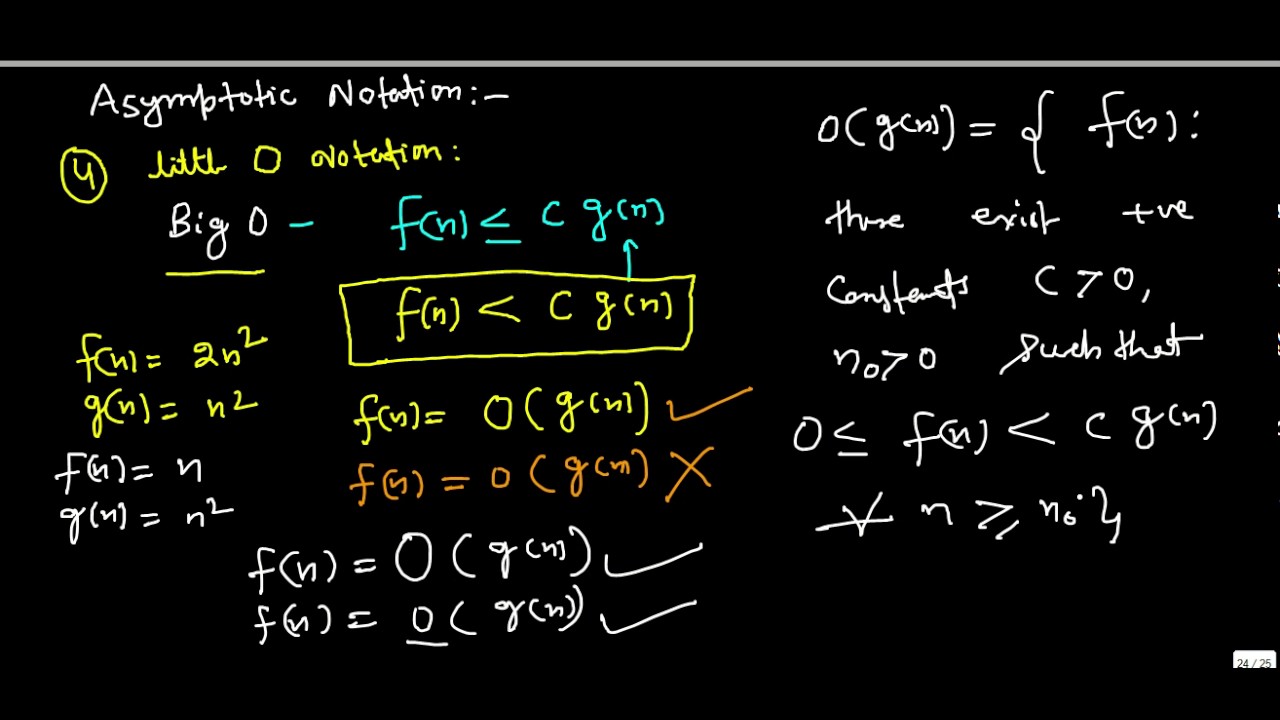 Asymptotic Notation:-
④ little O Notation:
Big O - f(n) ≤ C g(n)
f(n) < C g(n)
f(n) = 2n²
g(n) = n²
f(n) = O(g(n)) ✓
f(n) = o(g(n)) ✗
f(n) = n
g(n) = n²
f(n) = O(g(n)) ✓
f(n) = o(g(n)) ✓
o(g(n)) = { f(n):
there exist +ve
constants C > 0,
n₀ > 0 such that
0 ≤ f(n) < C g(n)
∀ n ≥ n₀.}
24 / 25